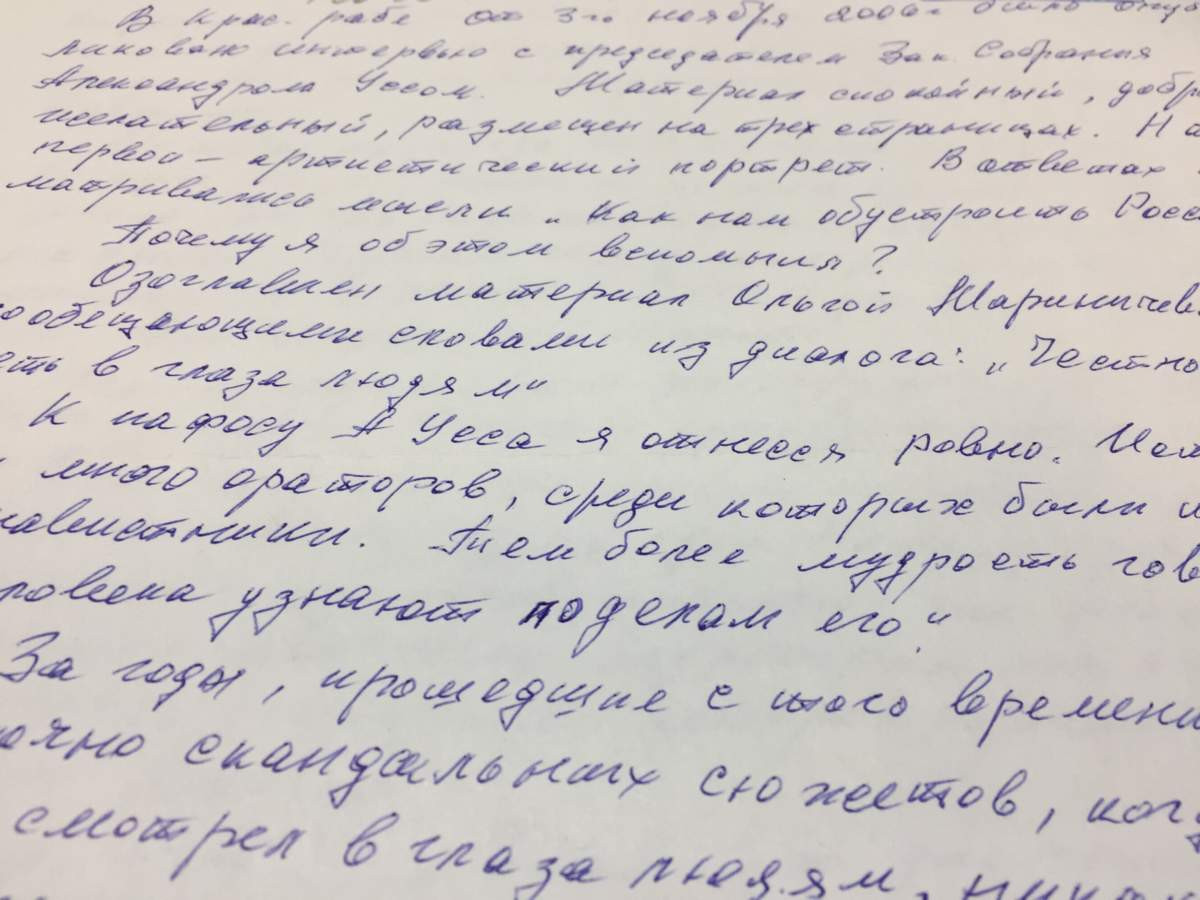 В Крас. рабе от 3го ноября 2006г было опуб
ликовано интервью с председателем Зак. Собрания
Александром Уссом. Материал спокойный, добро
желательный, размещен на трех страницах. На
первой – артистический портрет. В ответах
матривались мысли „Как нам обустроить Росс
Почему я об этом вспомнил?
Озаглавлен материал Ольгой
ообещающими словами из диалога: „Честно
еть в глаза людям“
К пафосу А Усса я отнесся ровно.
много ораторов, среди которых были и
Тем более мудрость гов
ловека узнают по делам его“.
За годы, прошедшие с того времени
точно скандальных сюжетов, ког
смотрел в глаза людям,